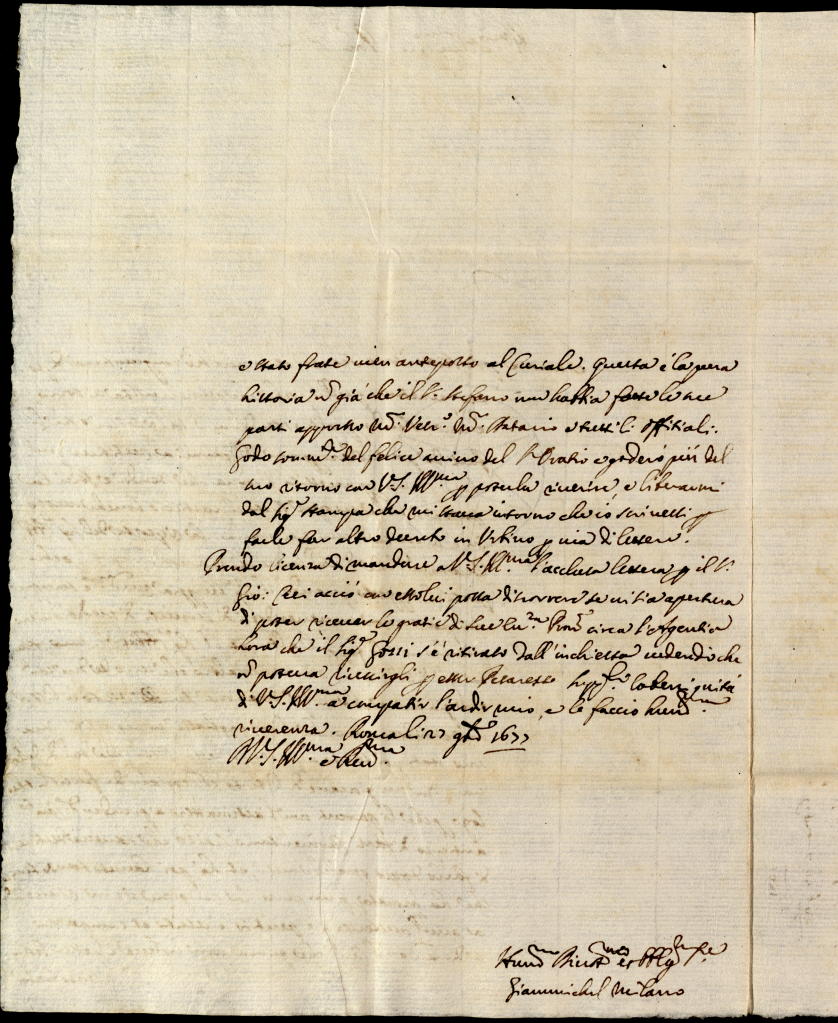 è stato frate meri anteposto al Curiale. Questa è la vera
historia nõ già che il S.r Stefano non habbia fatto le sue
parti appresso M.r Vesc.o M.r Datario e tutti l'offitiali.
Godo somm.te del felice arrivo del S.r Oratio e goderò più del
suo ritorno con V.S. Ill.ma p poterla riverire, e liberarmi
dal Sig.r Stampa che mi intorno che io scrivessi p
farle far altro decreto in Urbino p via di lettere.
Prendo licenza di mandare a V.S. Ill.ma l'acclusa lettera p il S.r
Gio: acciò con esso lui possa discorrere se vi sia apertura
di poter ricever le gratie di Sue circa l'Argentia
hora che il Sig.r Gozzi s'è ritirato dall'inchiesta vedendo che
nõ poteva riuscirgli p esser Pesarese la benignità
di V.S. Ill.ma à compatir l'ardir mio, e le faccio
riverenza. Roma li 27 1677
D V.S. Ill.ma e Rev.ma
Hum.mo et Obblig.mo Se.re
Giammichel Milano